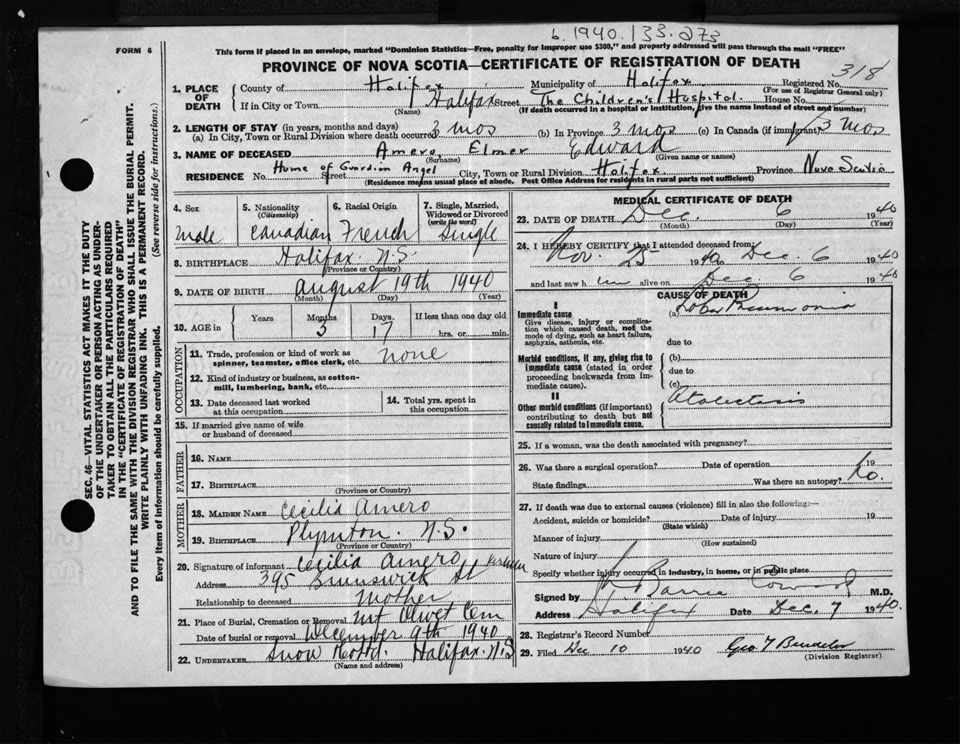 6.1940.133.273
FORM 6
This form if placed in an envelope, marked "Dominion Statistics—Free, penalty for improper use $300," and properly addressed will pass through the mail "FREE"
PROVINCE OF NOVA SCOTIA—CERTIFICATE OF REGISTRATION OF DEATH
318
1. PLACE OF DEATH County of Halifax Municipality of Halifax Registered No.
(For use of Registrar General only)
If in City or Town Halifax Street The Children's Hospital House No.
(Name) (If death occurred in a hospital or institution, give the name instead of street and number)
2. LENGTH OF STAY (in years, months and days)
(a) In City, Town or Rural Division where death occurred 3 mos (b) In Province 3 mos (c) In Canada (if immigrant) 3 mos
3. NAME OF DECEASED Amero, Elmer Edward
(Surname) (Given name or names)
RESIDENCE No. Home of Guardian Angel Street City, Town or Rural Division Halifax Province Nova Scotia
(Residence means usual place of abode. Post Office Address for residents in rural parts not sufficient)
SEC. 46—VITAL STATISTICS ACT MAKES IT THE DUTY
OF THE UNDERTAKER OR PERSON ACTING AS UNDER-
TAKER TO OBTAIN ALL THE PARTICULARS REQUIRED
IN THE "CERTIFICATE OF REGISTRATION OF DEATH"
AND TO FILE THE SAME WITH THE DIVISION REGISTRAR WHO SHALL ISSUE THE BURIAL PERMIT.
WRITE PLAINLY WITH UNFADING INK. THIS IS A PERMANENT RECORD.
Every item of information should be carefully supplied. (See reverse side for instructions.)
4. Sex
male
5. Nationality
(Citizenship)
Canadian
6. Racial Origin
French
7. Single, Married,
Widowed or Divorced
(write the word)
Single
8. BIRTHPLACE Halifax. N.S.
(Province or Country)
9. DATE OF BIRTH August 19th 1940
(Month) (Day) (Year)
10. AGE in Years Months Days If less than one day old
3 17 hrs. or min.
OCCUPATION
11. Trade, profession or kind of work as
spinner, teamster, office clerk, etc. none
12. Kind of industry or business, as cotton-
mill, lumbering, bank, etc.
13. Date deceased last worked
at this occupation
14. Total yrs. spent in
this occupation
15. If married give name of wife
or husband of deceased
FATHER
16. NAME
17. BIRTHPLACE
(Province or Country)
MOTHER
18. MAIDEN NAME Cecilia Amero
19. BIRTHPLACE Plympton. N.S.
(Province or Country)
20. Signature of informant Cecilia Amero
Address 395 Brunswick St
Relationship to deceased Mother
21. Place of Burial, Cremation or Removal Mt Olivet Cem
Date of burial or removal December 9th 1940
22. UNDERTAKER Snow Halifax. N.S
(Name and address)
MEDICAL CERTIFICATE OF DEATH
23. DATE OF DEATH Dec. 6 1940
(Month) (Day) (Year)
24. I HEREBY CERTIFY that I attended deceased from:
Nov. 25 1940 to Dec. 6 1940
and last saw him alive on Dec 6 1940
CAUSE OF DEATH
I
Immediate cause
Give disease, injury or complica-
tion which caused death, not the
mode of dying, such as heart failure,
asphyxia, asthenia, etc.
(a) Lobar Pneumonia
due to
Morbid conditions, if any, giving rise to
immediate cause (stated in order
proceeding backwards from im-
mediate cause).
(b)
due to
(c)
II
Other morbid conditions (if important)
contributing to death but not
causally related to immediate cause.
Atelectasis
25. If a woman, was the death associated with pregnancy?
26. Was there a surgical operation? Date of operation 19
State findings Was there an autopsy? No.
27. If death was due to external causes (violence) fill in also the following:
Accident, suicide or homicide? Date of injury 19
(State which)
Manner of injury
(How sustained)
Nature of injury
Specify whether injury occurred in industry, in home, or in public place
Signed by Barrie Coward M.D.
Address Halifax Date Dec. 7 1940.
28. Registrar's Record Number
29. Filed Dec 10 1940 Geo. T
(Division Registrar)